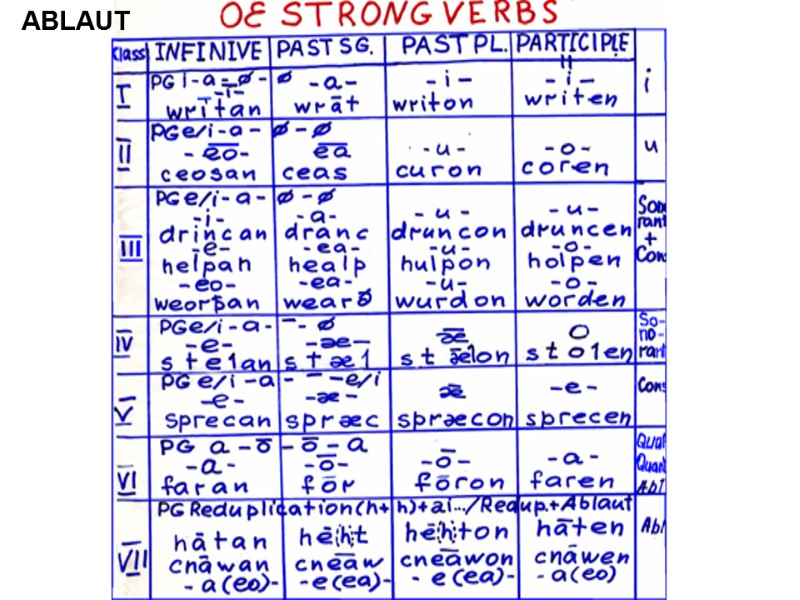 ABLAUT
OE STRONG VERBS
Class INFINIVE PAST SG. PAST PL. PARTICIPLE
I
PG i-a-ø-ø
-ī- -a- -i- -i-
wrītan wrāt writon writen i
II
PG e/i-a-ø-ø
-eo- ēa -u- -o-
ceosan ceas curon coren u
III
PG e/i-a-ø-ø
-i- -a- -u- -u-
drincan dranc druncon druncen
-e- -ea- -u- -o-
helpan healp hulpon holpen
-eo- -ea- -u- -o-
weorþan wearð wurdon worden
+
IV
PG e/i-a-¯-ø
-e- -æ- ǣ o
stelan stæl stǣlon stolen
So-
no-
rant
V
PG e/i-a-¯-e/i
-e- -æ- ǣ -e-
sprecan spræc spræcon sprecen
Cons
VI
PG a-ō-ō-a
-a- -ō- -ō- -a-
faran fōr fōron faren
Abl
VII
PG Reduplication(h+h)+ai.../Redup.+Ablaut
hātan hēht hēhton hāten
cnāwan cnēaw cnēawon cnāwen
-a(eo)- -e(ea)- -e(ea)- -a(eo)
Abl